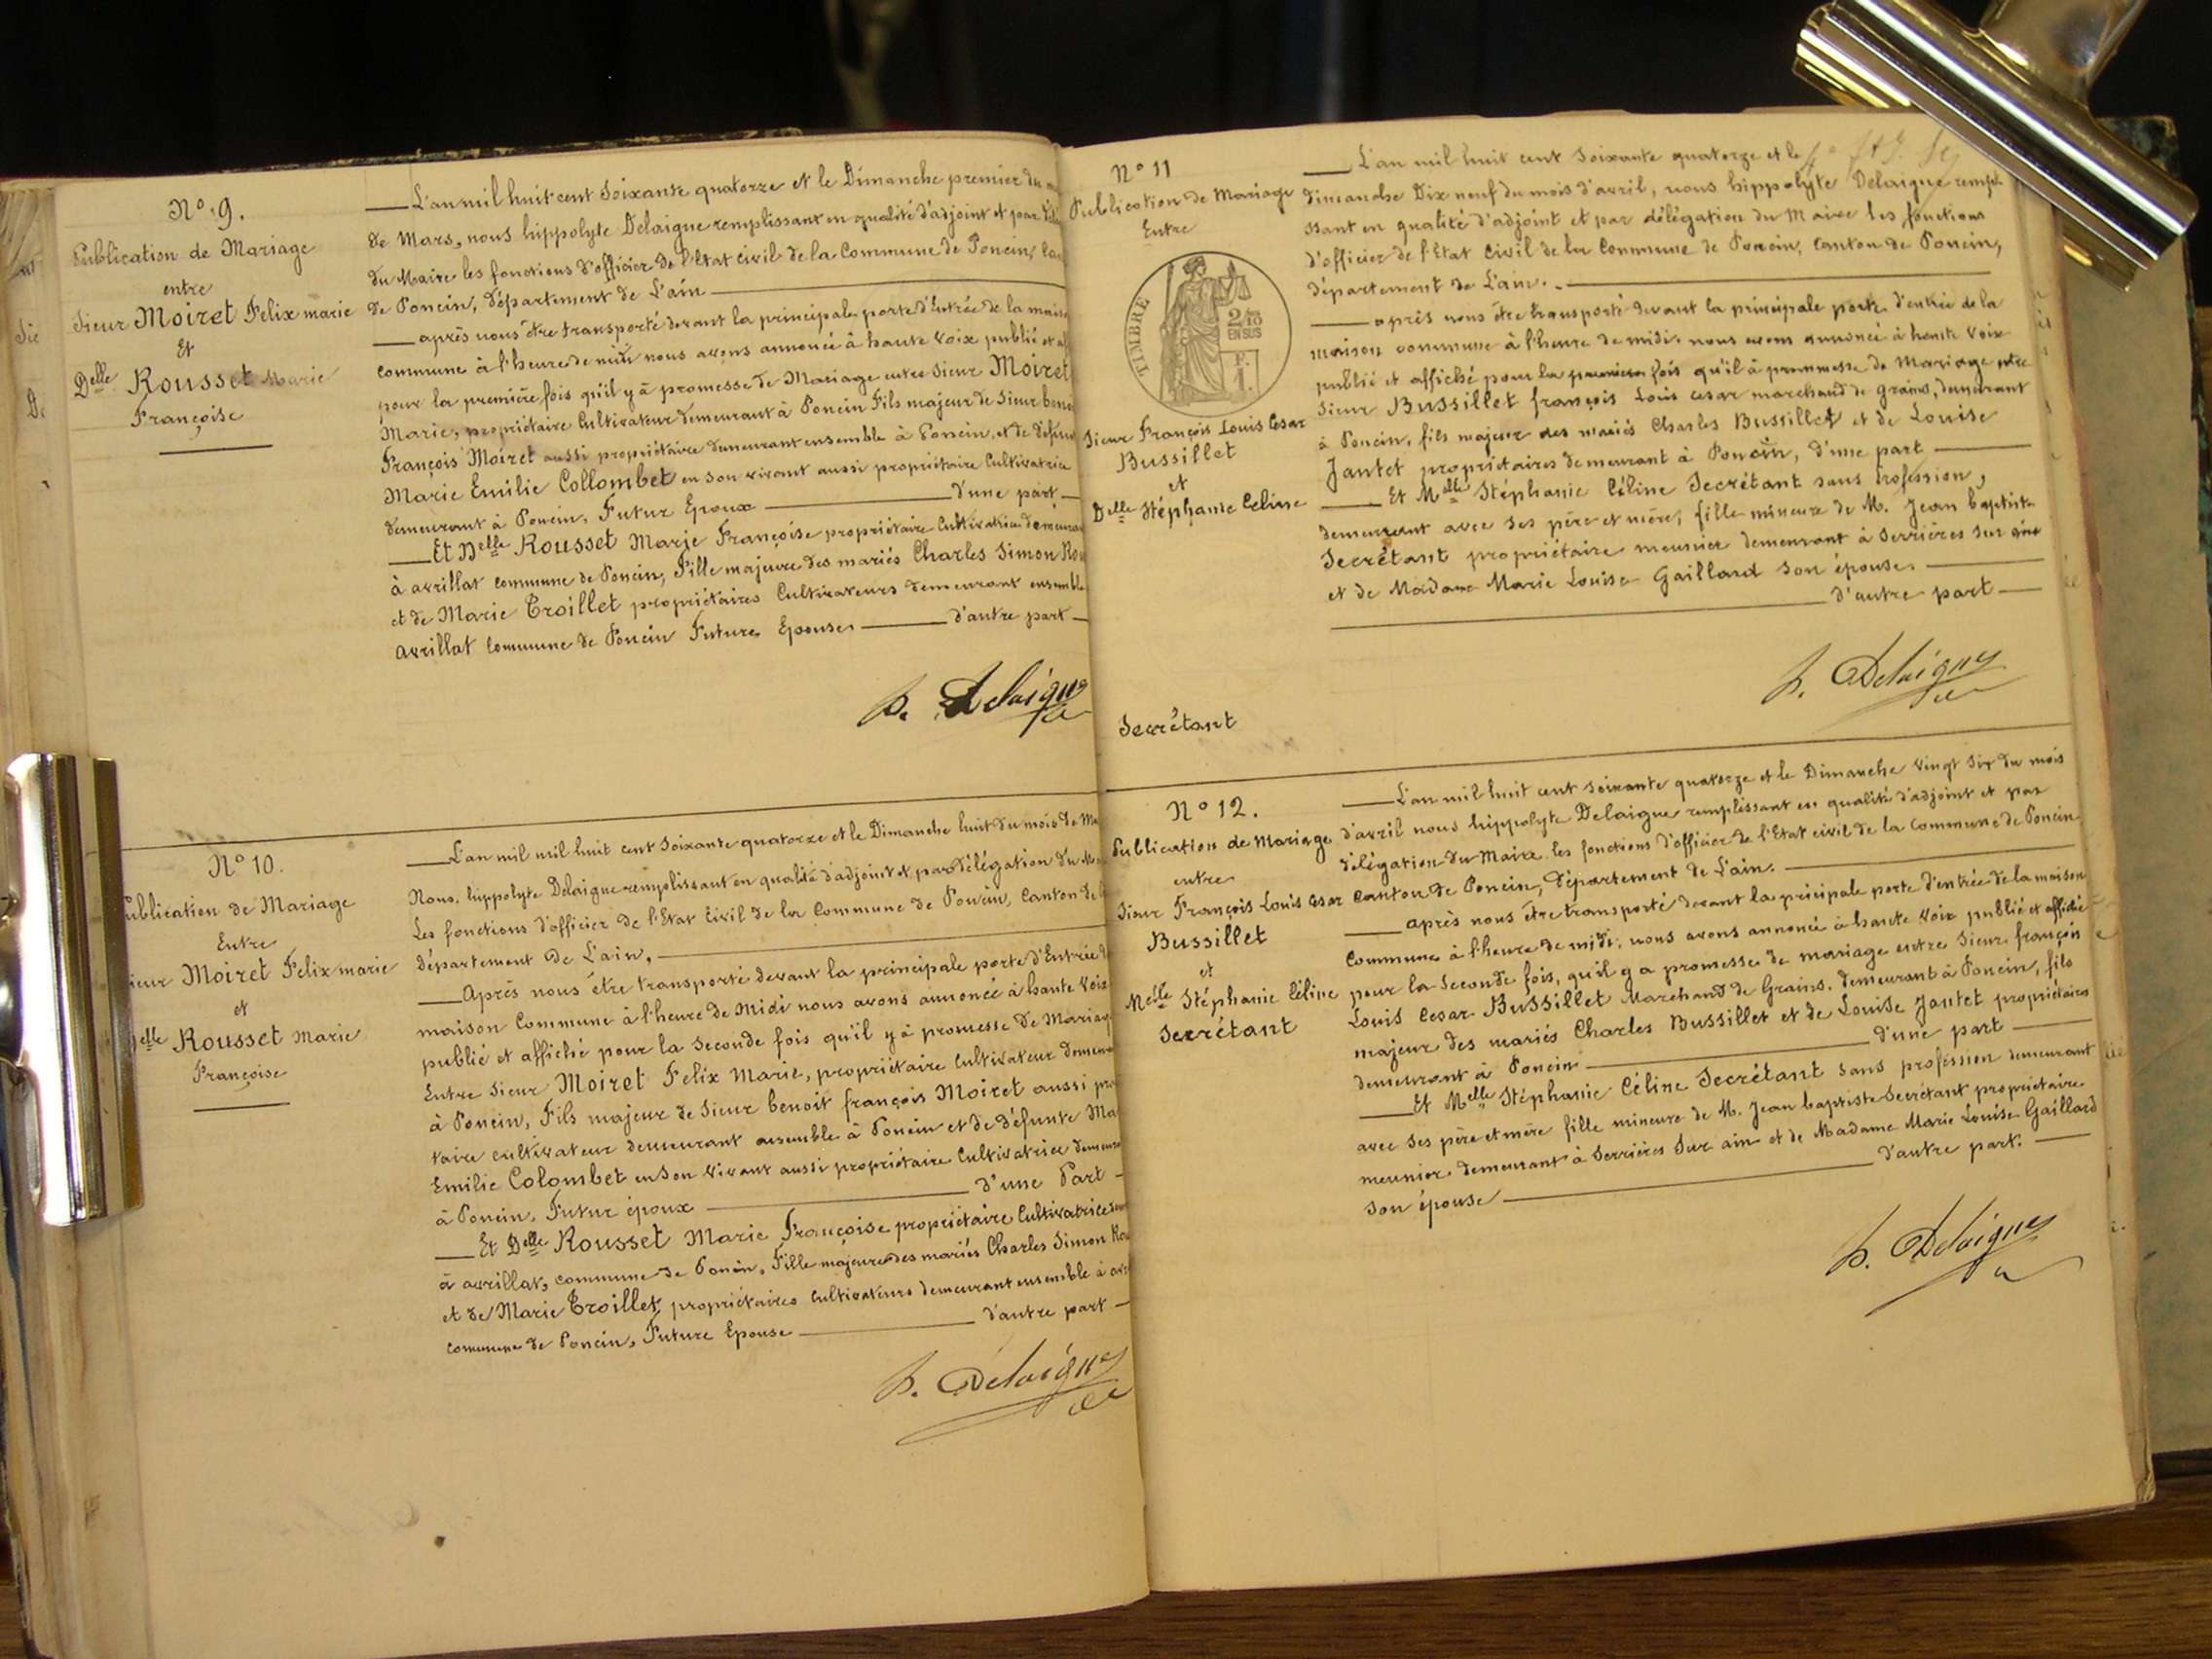 N° 9.
Publication de Mariage
entre
Sieur Moiret Felix marie
Et
Delle Rousset Marie
Françoise
L'an mil huit cent soixante quatorze et le Dimanche premier du
de Mars, nous hippolyte Delaigue remplissant en qualité d'adjoint et par
du Maire les fonctions d'officier de l'Etat civil de la Commune de Poncin,
de Poncin, département de L'ain
après nous être transporté devant la principale porte d'Entrée de la
commune à l'heure de midi nous avons annoncé à haute voix publié et
pour la première fois qu'il y à promesse de Mariage entre Sieur Moiret
Marie, propriétaire Cultivateur demeurant à Poncin Fils majeur de Sieur
François Moiret aussi propriétaire demeurant ensemble à Poncin, et de
Marie Emilie Collombet en son vivant aussi propriétaire Cultivatrice
demeurant à Poncin, Futur Epoux d'une part
Et Delle Rousset Marie Françoise propriétaire Cultivatrice
à avrillat commune de Poncin, Fille majeure des mariés Charles Simon
et de Marie Troillet propriétaires Cultivateurs demeurant ensemble
avrillat commune de Poncin Future Epouse d'autre part
h. Delaigue
N° 10.
Publication de Mariage
Entre
Sieur Moiret Felix marie
et
Delle Rousset Marie
Françoise
L'an mil mil huit cent soixante quatorze et le Dimanche huit du mois de
Nous, hippolyte Delaigue remplissant en qualité d'adjoint et par délégation du
Les fonctions d'officier de l'Etat Civil de la Commune de Poncin, Canton de
département de L'ain,
Après nous être transporté devant la principale porte d'Entrée
maison Commune à l'heure de Midi nous avons annoncé à haute voix
publié et affiché pour la seconde fois qu'il y à promesse de Mariage
Entre Sieur Moiret Felix Marie, propriétaire Cultivateur
à Poncin, Fils majeur de Sieur benoit françois Moiret aussi
taire cultivateur demeurant ensemble à Poncin et de défunte
Emilie Colombet en son vivant aussi propriétaire Cultivatrice
à Poncin, Futur époux d'une Part
Et Delle Rousset Marie Françoise propriétaire Cultivatrice
à avrillat, commune de Poncin, Fille majeure des mariés Charles Simon
et de Marie Troillet, propriétaires cultivateurs demeurant ensemble à
commune de Poncin, Future Epouse d'autre part
h. Delaigue
N° 11
Publication de Mariage
Entre
TIMBRE
2/10
EN SUS
Sieur François Louis Cesar
Bussillet
et
Delle Stéphanie Celine
Secrétant
L'an mil huit cent soixante quatorze et le
dimanche Dix neuf du mois d'avril, nous hippolyte Delaigue
ssant en qualité d'adjoint et par délégation du Maire les fonctions
d'officier de l'Etat Civil de la Commune de Poncin, Canton de Poncin,
département de L'ain.
après nous être transporté devant la principale porte d'entrée de la
maison commune à l'heure de midi, nous avons annoncé à haute voix
publié et affiché pour la première fois qu'il à prommesse de Mariage entre
Sieur Bussillet françois Louis cesar marchand de grains, demeurant
à Poncin, fils majeur des mariés Charles Bussillet et de Louise
Jantet propriétaires demeurant à Poncin, d'une part
Et Melle Stéphanie Céline Secrétant sans profession,
demeurant avec ses père et mère, fille mineure de M. Jean baptiste
Secrétant propriétaire meunier demeurant à Serrières sur ain
et de Madame Marie Louise Gaillard son épouse.
d'autre part
h. Delaigue
N° 12.
Publication de Mariage
entre
Sieur François Louis Cesar
Bussillet
et
Melle Stéphanie Céline
Secrétant
L'an mil huit cent soixante quatorze et le Dimanche vingt six du mois
d'avril nous hippolyte Delaigue remplissant en qualité d'adjoint et par
délégation du Maire les fonctions d'officier de l'Etat civil de la commune de Poncin
Canton de Poncin, département de L'ain.
Après nous être transporté devant la pricipale porte d'entrée de la maison
Commune à l'heure de midi, nous avons annoncé à haute voix publié et affiché
pour la Seconde fois, qu'il y a promesse de mariage entre Sieur françois
Louis Cesar Bussillet Marchand de Grains, demeurant à Poncin, fils
majeur des mariés Charles Bussillet et de Louise Jantet propriétaires
demeurant à Poncin d'une part
Et Melle Stéphanie Céline Secrétant sans profession demeurant
avec ses père et mère fille mineure de M. Jean baptiste Secrétant propriétaire
meunier demeurant à Serrières sur ain et de Madame Marie Louise Gaillard
son épouse d'autre part.
h. Delaigue